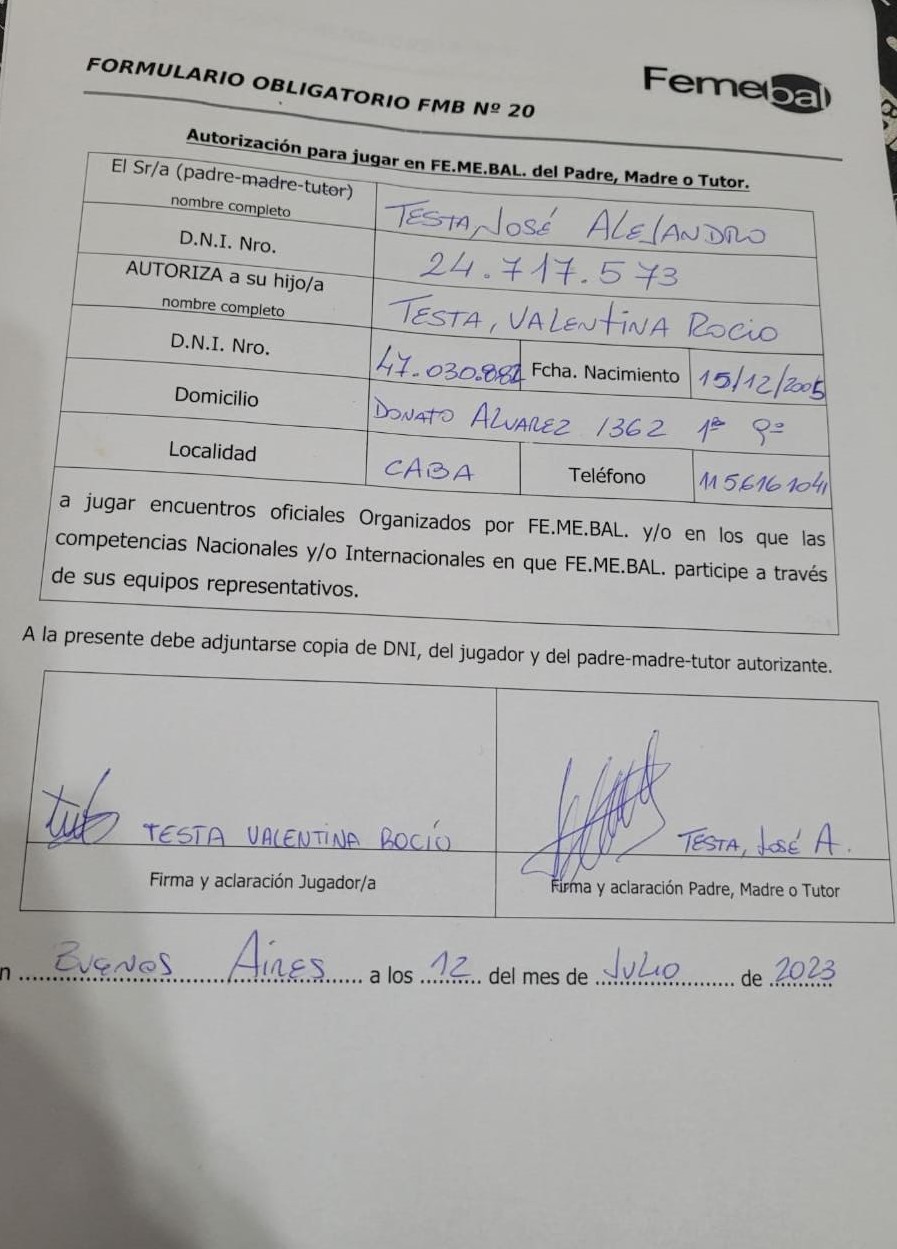 FORMULARIO OBLIGATORIO FMB Nº 20
Femebal
Autorización para jugar en FE.ME.BAL. del Padre, Madre o Tutor.
El Sr/a (padre-madre-tutor)
nombre completo
TESTA, JOSÉ ALEJANDRO
D.N.I. Nro.
24.717.573
AUTORIZA a su hijo/a
nombre completo
TESTA, VALENTINA ROCIO
D.N.I. Nro.
Fcha. Nacimiento
15/12/2005
Domicilio
DONATO ALVAREZ 1362 1º
Localidad
CABA
Teléfono
a jugar encuentros oficiales Organizados por FE.ME.BAL. y/o en los que las
competencias Nacionales y/o Internacionales en que FE.ME.BAL. participe a través
de sus equipos representativos.
A la presente debe adjuntarse copia de DNI, del jugador y del padre-madre-tutor autorizante.
TESTA VALENTINA ROCÍO
TESTA, JOSÉ A.
Firma y aclaración Jugador/a
Firma y aclaración Padre, Madre o Tutor
n BUENOS AIRES a los 12 del mes de JULIO de 2023